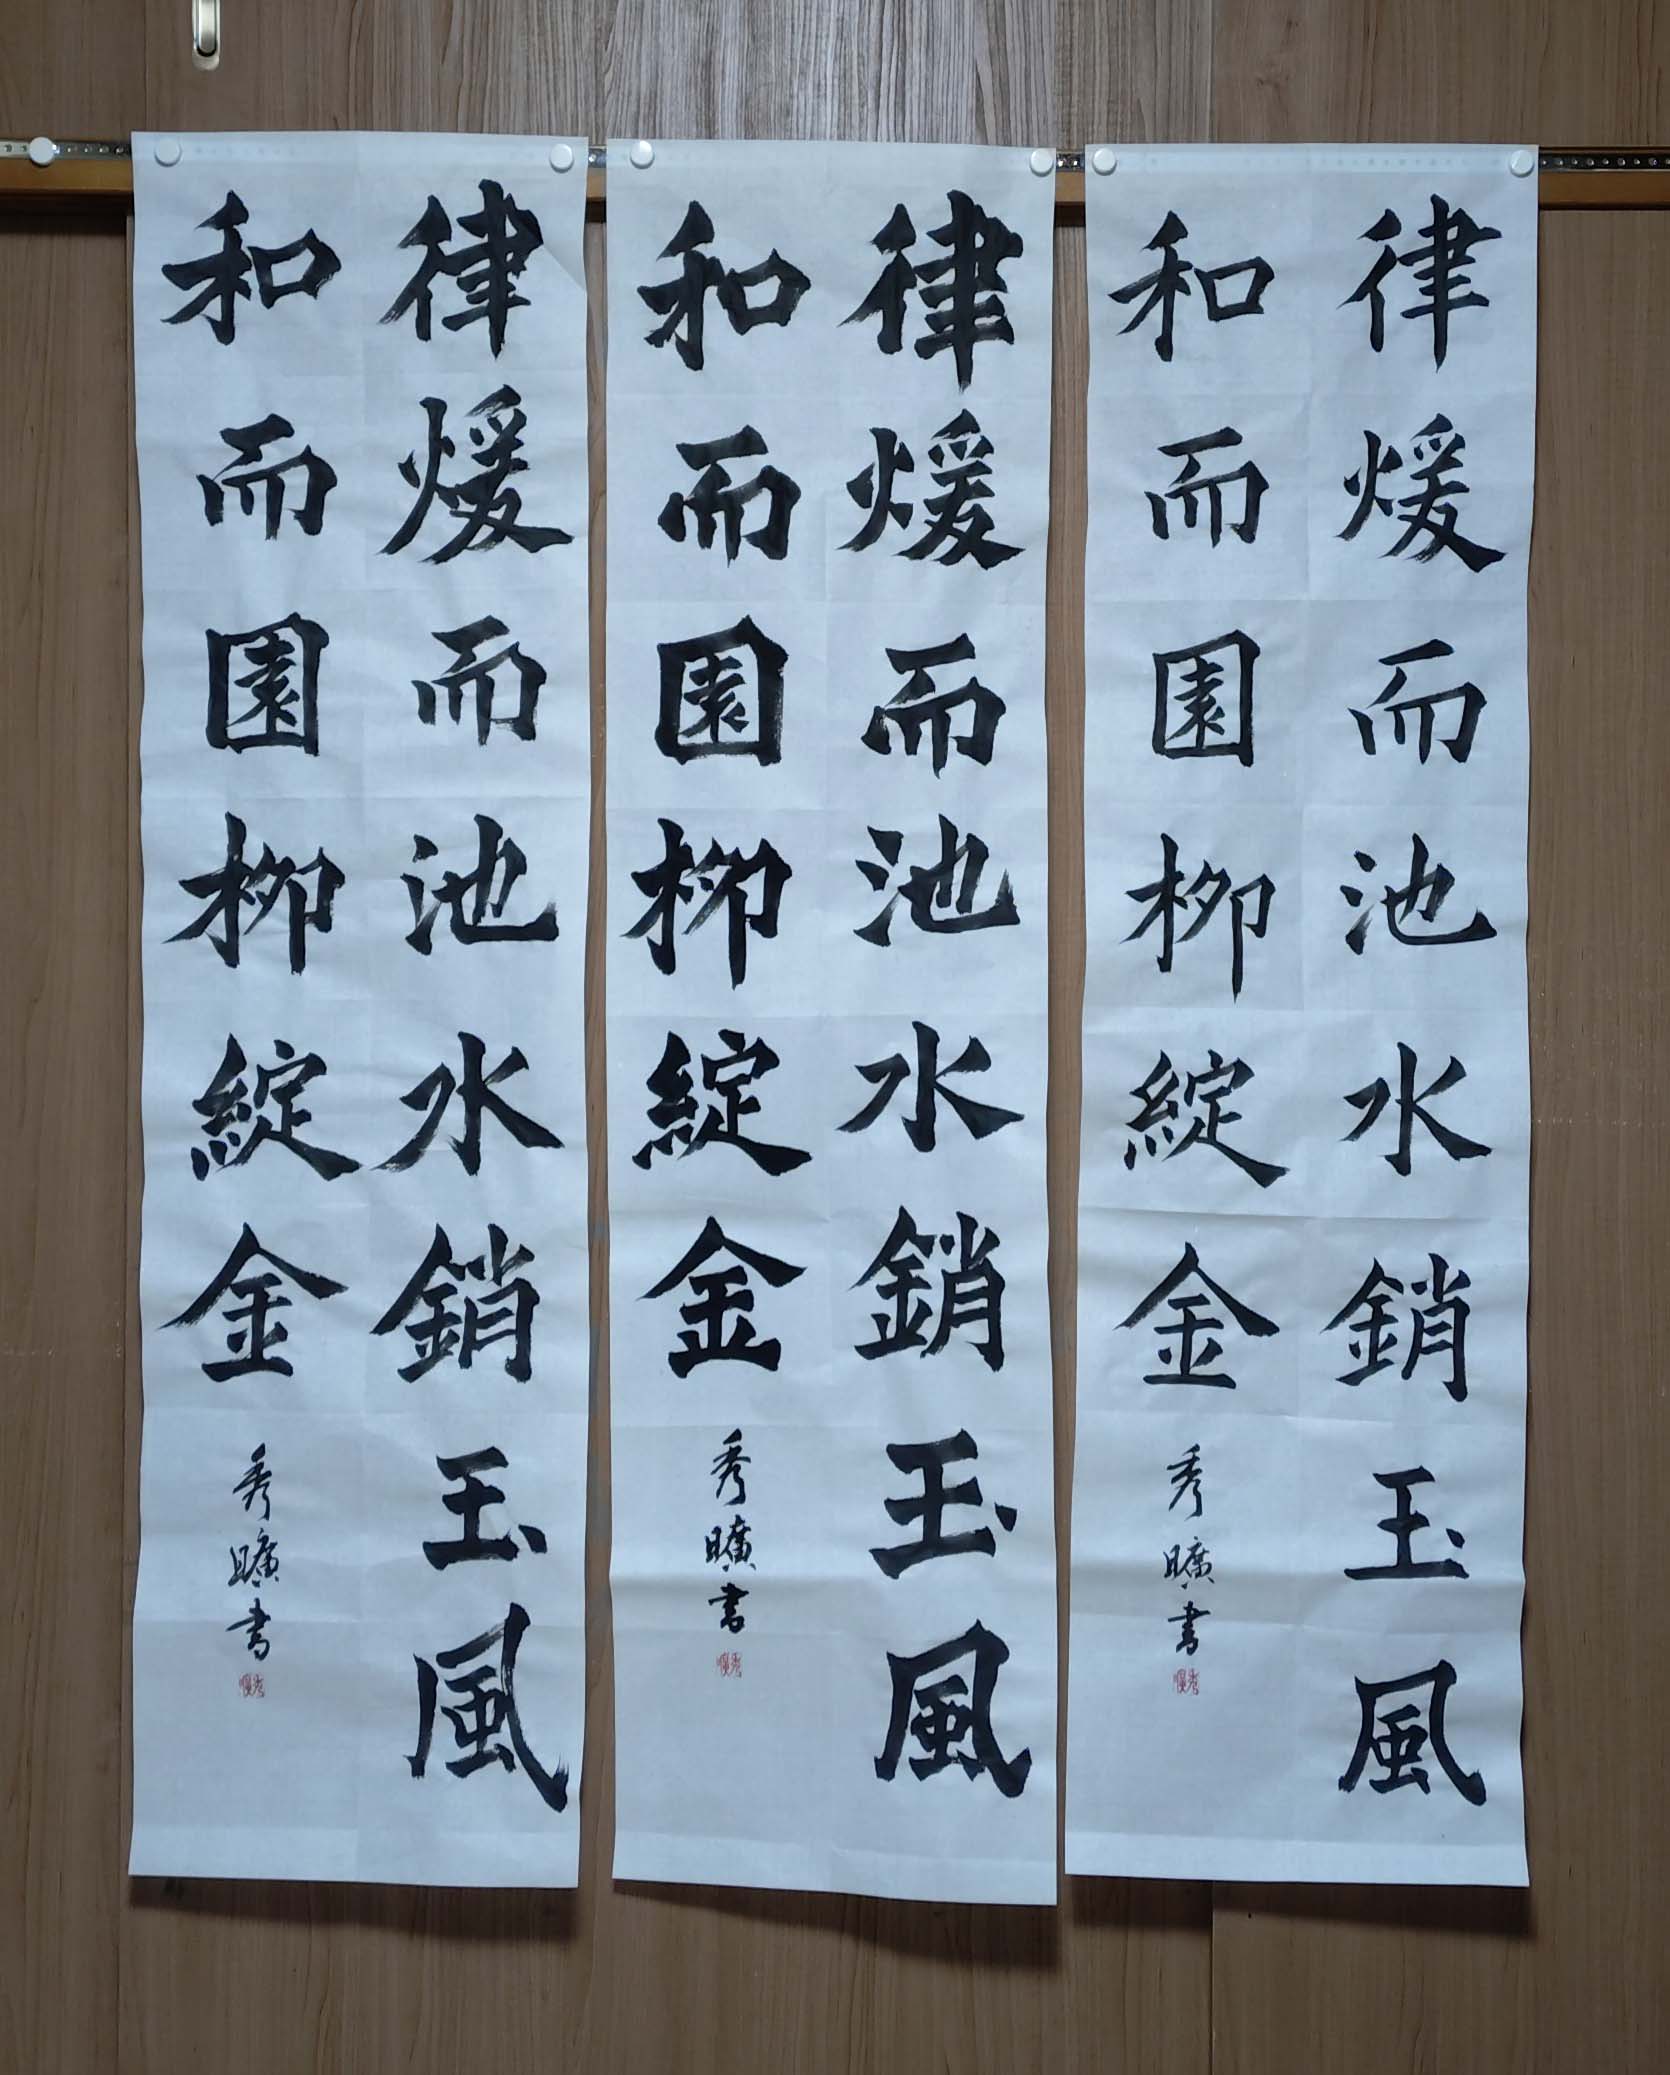 律煖而池水銷玉風
和而園柳綻金
秀曠書
律煖而池水銷玉風
和而園柳綻金
秀曠書
律煖而池水銷玉風
和而園柳綻金
秀曠書